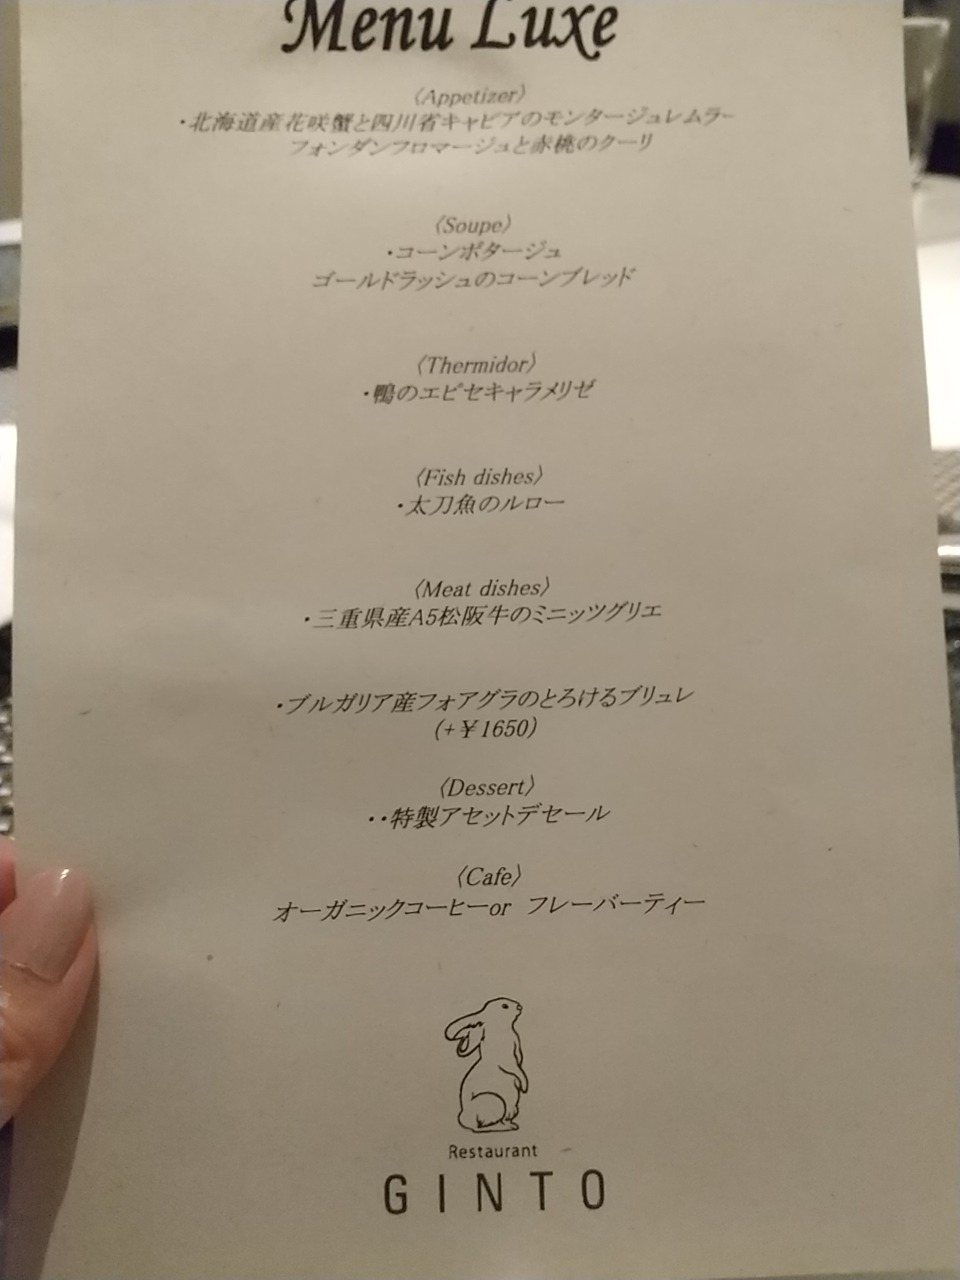 Menu Luxe
〈Appetizer〉
・北海道産花咲蟹と四川省キャビアのモンタージュレムラー
フォンダンフロマージュと赤桃のクーリ
〈Soupe〉
・コーンポタージュ
ゴールドラッシュのコーンブレッド
〈Thermidor〉
・鴨のエピセキャラメリゼ
〈Fish dishes〉
・太刀魚のルロー
〈Meat dishes〉
・三重県産A5松阪牛のミニッツグリエ
・ブルガリア産フォアグラのとろけるブリュレ
(+￥1650)
〈Dessert〉
・・特製アセットデセール
〈Cafe〉
オーガニックコーヒーor フレーバーティー
Restaurant
GINTO